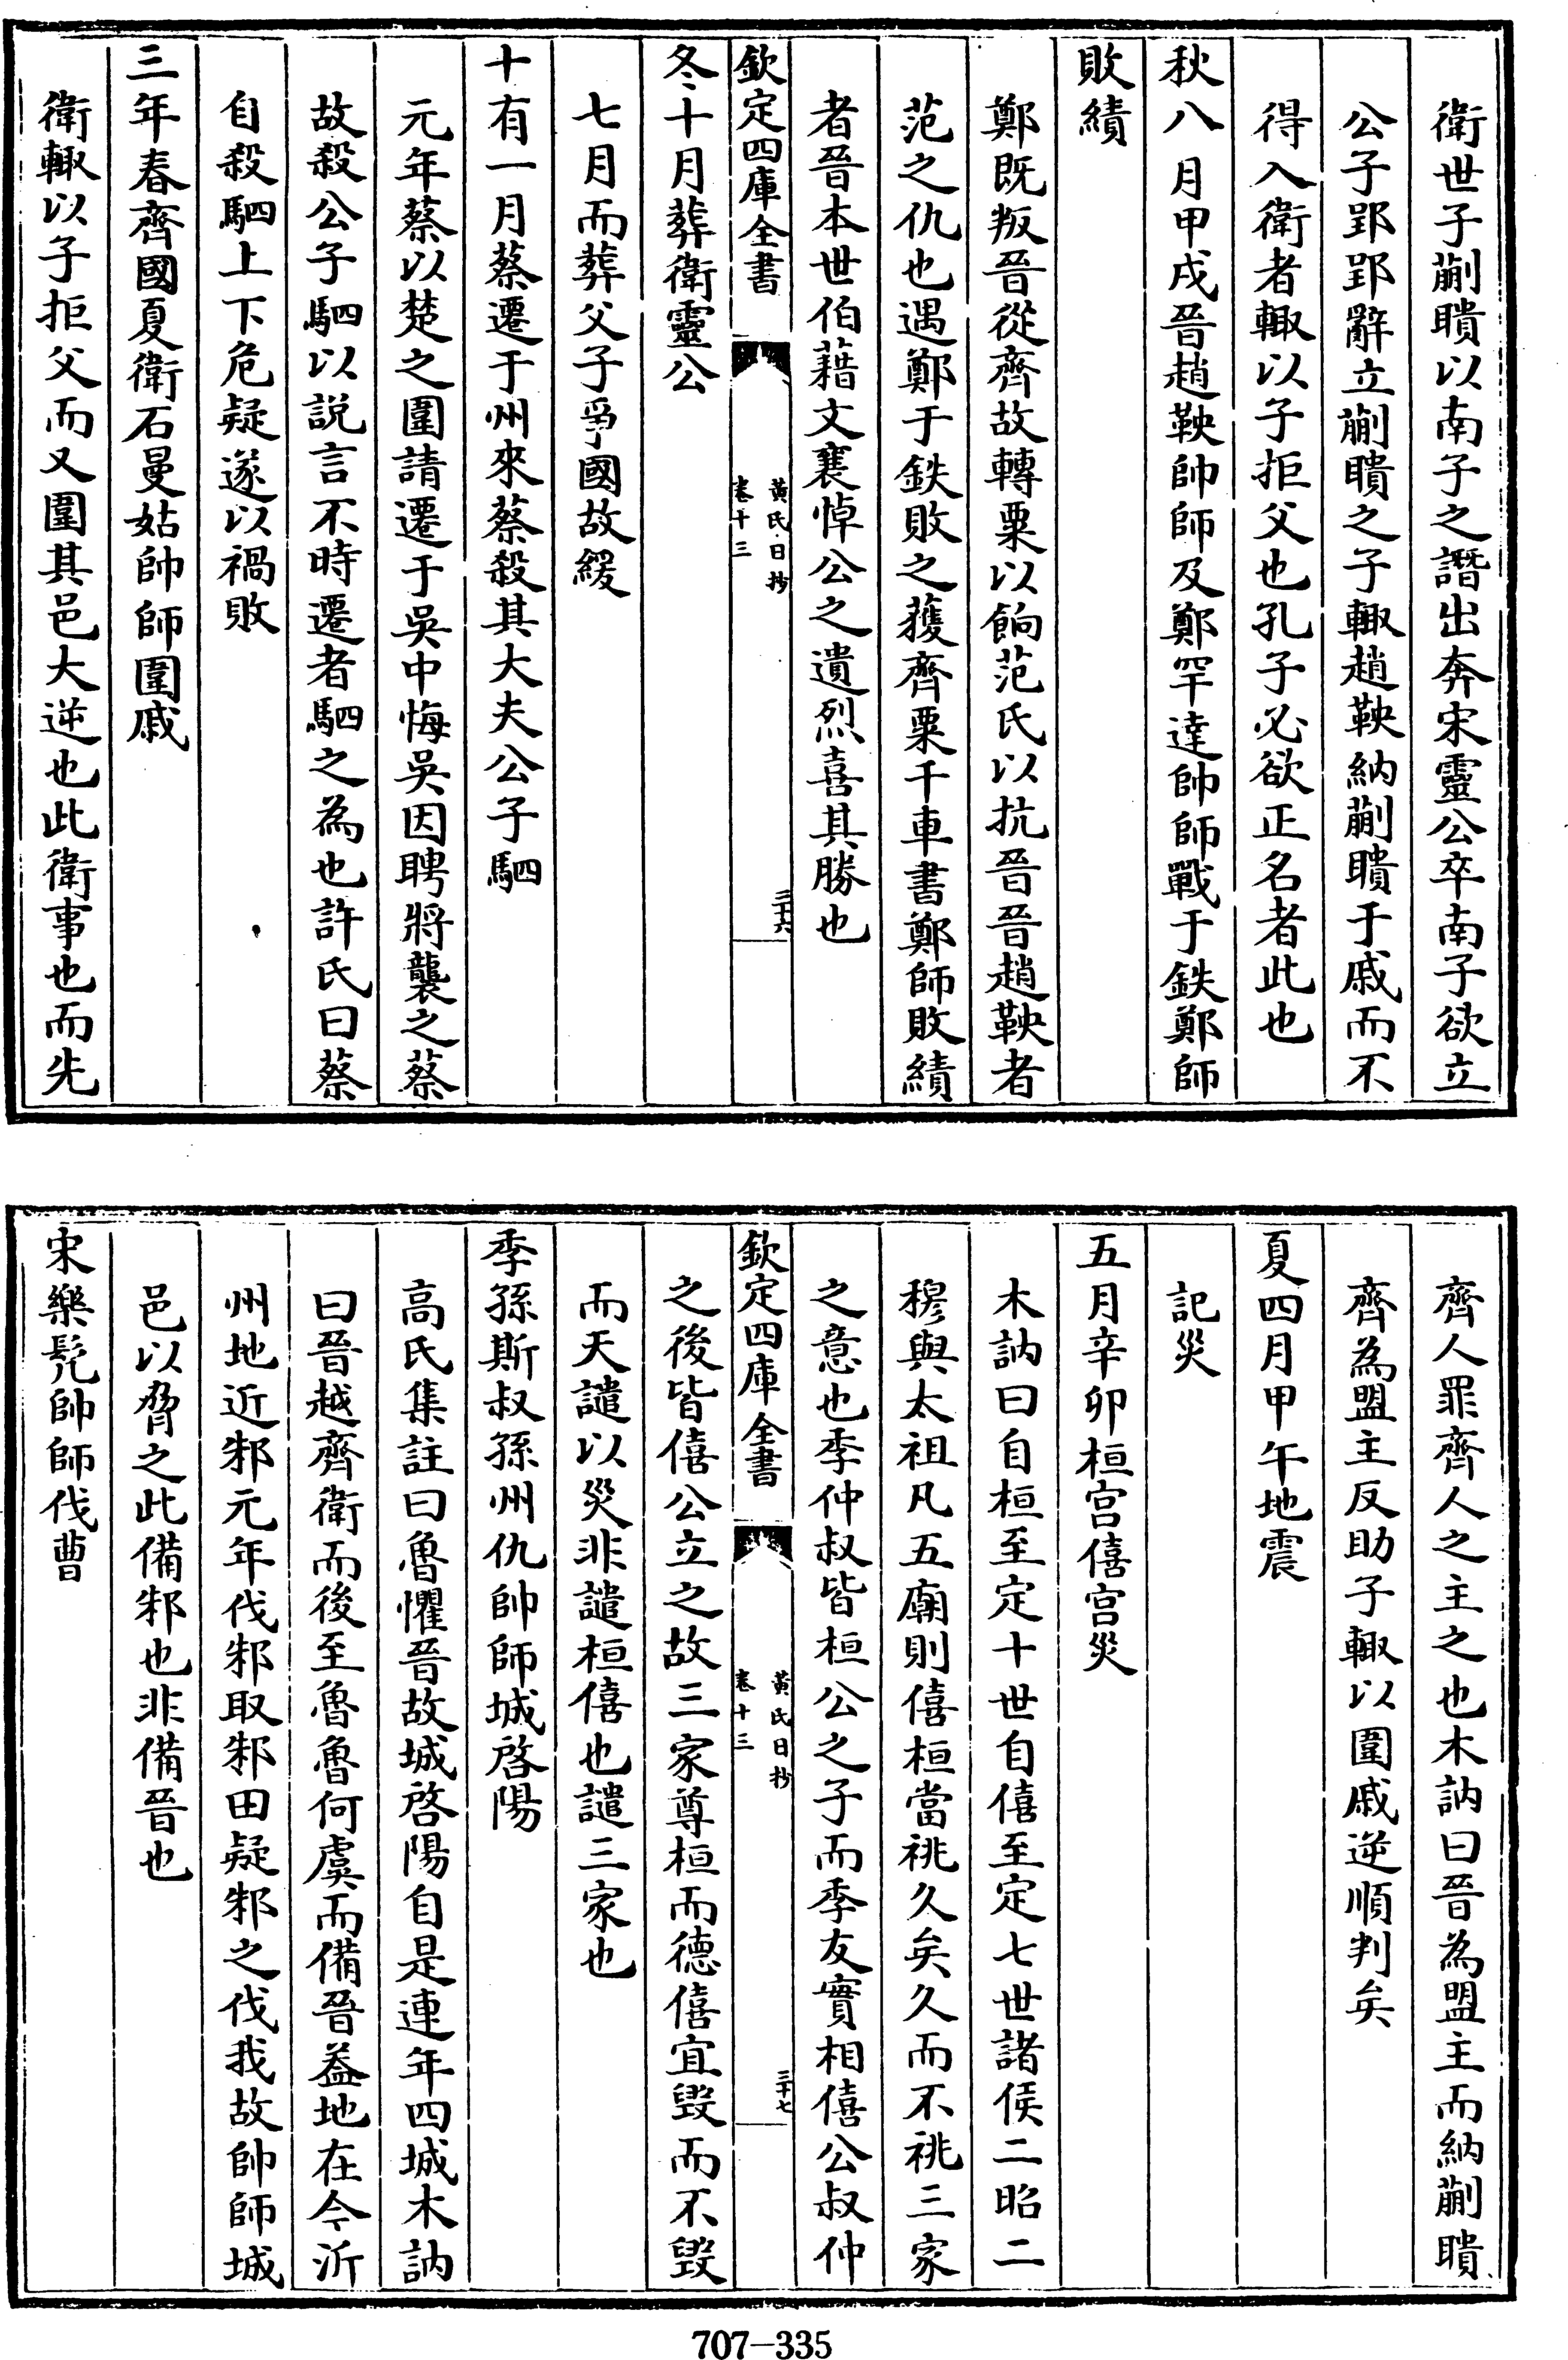 衛世子蒯聵以南子之譖出奔宋靈公卒南子欲立
公子郢郢辭立蒯聵之子輒趙鞅納蒯聵于戚而不
得入衛者輒以子拒父也孔子必欲正名者此也
秋八月甲戌晉趙鞅帥師及鄭罕達帥師戰于鉄鄭師
敗績
鄭既叛晉從齊故轉粟以餉范氏以抗晉晉趙鞅者
范之仇也遇鄭于鉄敗之獲齊粟千車書鄭師敗績
者晉本世伯藉文襄悼公之遺烈喜其勝也
欽定四庫全書
黃氏日抄
卷十三
三十六
冬十月葬衛靈公
七月而葬父子爭國故緩
十有一月蔡遷于州來蔡殺其大夫公子駟
元年蔡以楚之圍請遷于吳中悔吳因聘將襲之蔡
故殺公子駟以説言不時遷者駟之為也許氏曰蔡
自殺駟上下危疑遂以禍敗
三年春齊國夏衛石曼姑帥師圍戚
衛輒以子拒父而又圍其邑大逆也此衛事也而先
齊人罪齊人之主之也木訥曰晉為盟主而納蒯聵
齊為盟主反助子輒以圍戚逆順判矣
夏四月甲午地震
記災
五月辛卯桓宫僖宫災
木訥曰自桓至定十世自僖至定七世諸侯二昭二
穆與太祖凡五廟則僖桓當祧久矣久而不祧三家
之意也季仲叔皆桓公之子而季友實相僖公叔仲
欽定四庫全書
黃氏日抄
卷十三
三十七
之後皆僖公立之故三家尊桓而德僖宜毀而不毀
而天譴以災非譴桓僖也譴三家也
季孫斯叔孫州仇帥師城啓陽
高氏集註曰魯懼晉故城啓陽自是連年四城木訥
曰晉越齊衛而後至魯魯何虞而備晉葢地在今沂
州地近邾元年伐邾取邾田疑邾之伐我故帥師城
邑以脅之此備邾也非備晉也
宋樂髠帥師伐曹
707-335